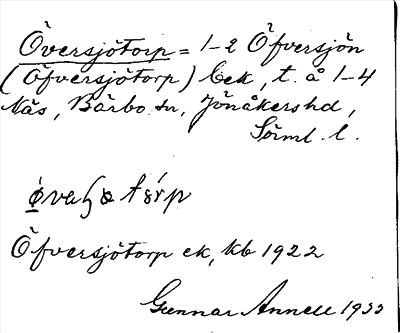 Översjötorp = 1-2 Öfversjön
(Öfversjötorp) bek, t. å 1-4
Näs, Bärbo sn, Jönåkershd,
Sörml. l.
Öfversjötorp ek, kb 1922
Gunnar Annell 1933